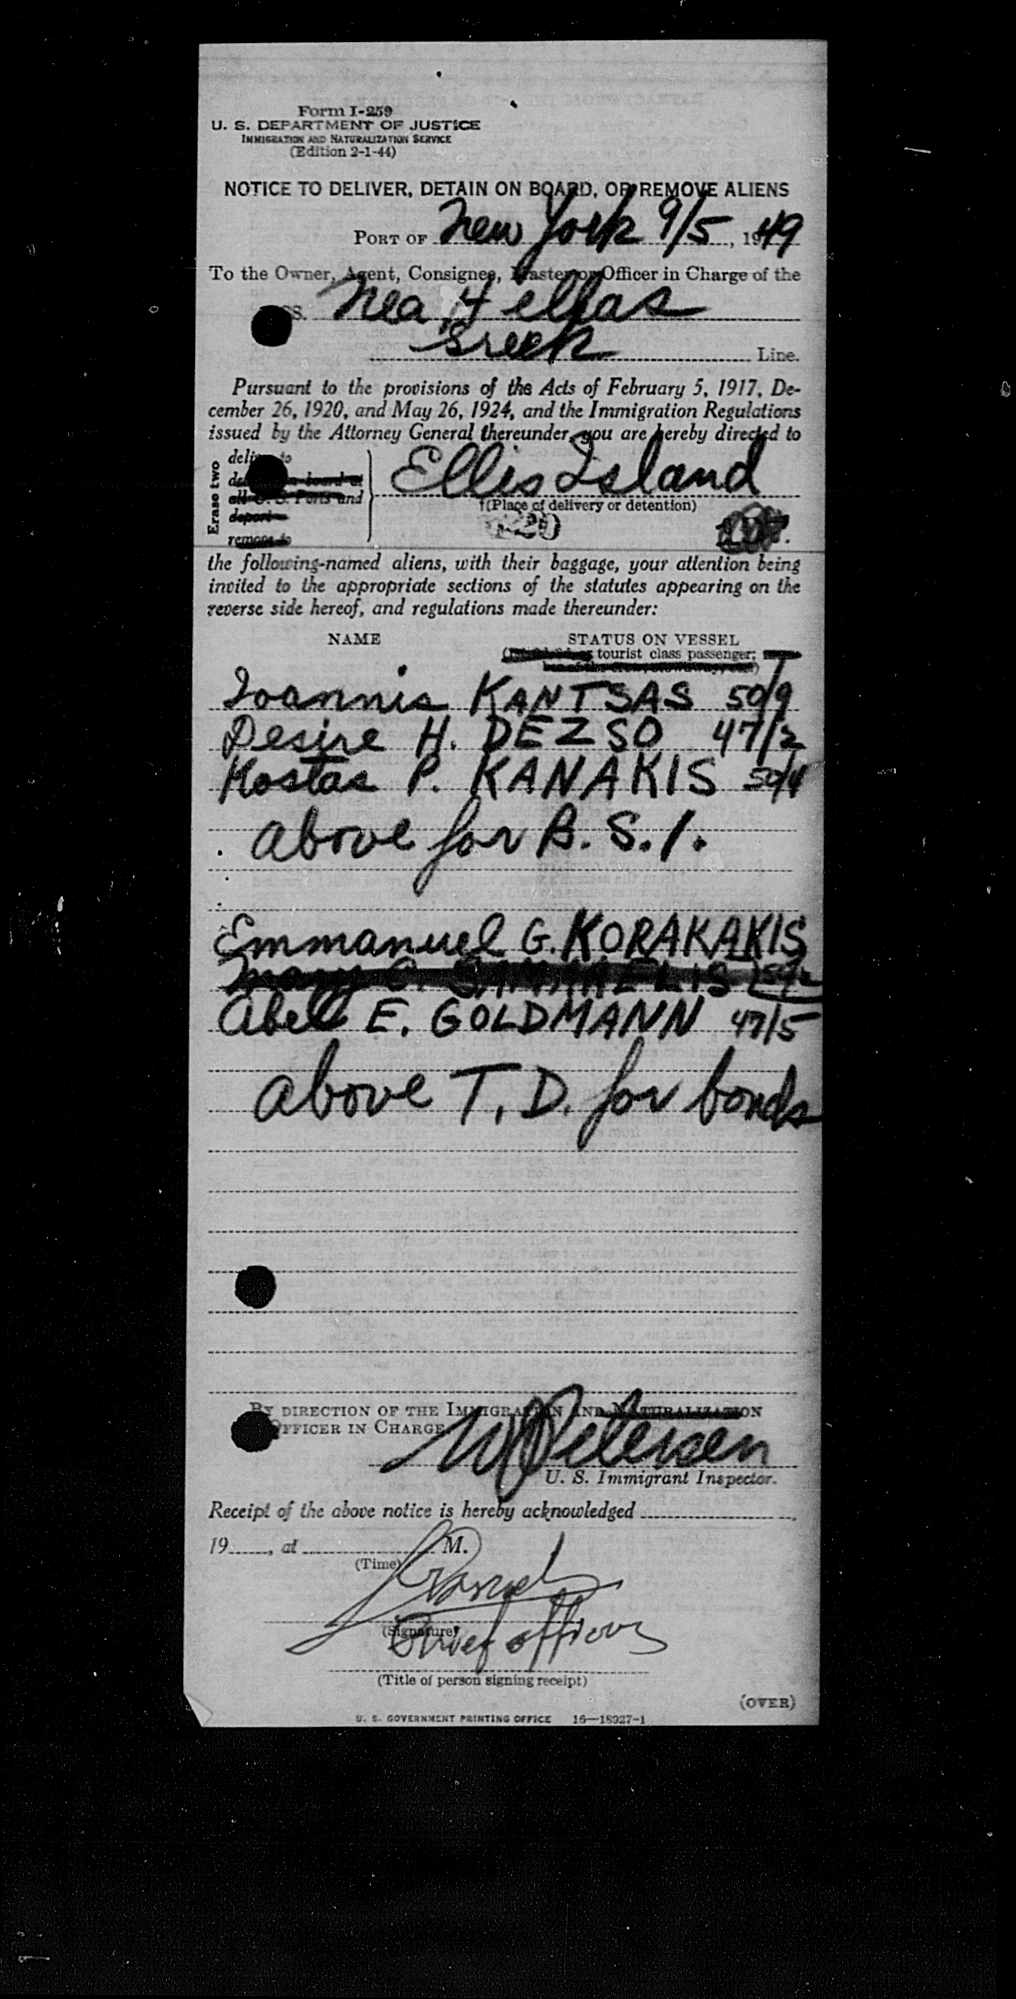 Form I-259
U. S. DEPARTMENT OF JUSTICE
IMMIGRATION AND NATURALIZATION SERVICE
(Edition 2-1-44)
NOTICE TO DELIVER, DETAIN ON BOARD, OR REMOVE ALIENS
PORT OF New York 9/5, 1949
To the Owner, Agent, Consignee, Master or Officer in Charge of the
SS. Nea Hellas
Greek Line.
Pursuant to the provisions of the Acts of February 5, 1917, De-
cember 26, 1920, and May 26, 1924, and the Immigration Regulations
issued by the Attorney General thereunder, you are hereby directed to
Erase two
deliver to
on board at
all U. S. Ports and
deport
remove to
Ellis Island
†(Place of delivery or detention)
the following-named aliens, with their baggage, your attention being
invited to the appropriate sections of the statutes appearing on the
reverse side hereof, and regulations made thereunder:
NAME STATUS ON VESSEL
tourist class passenger;
Ioannis KANTSAS 50/9
Desire H. DEZSO 47/2
Kostas P. KANAKIS 50/4
above for B. S. I.
Emmanuel G. KORAKAKIS
Abell E. GOLDMANN 47/5
above T. D. for bonds
BY DIRECTION OF THE IMMIGRATION AND NATURALIZATION
OFFICER IN CHARGE
Petersen
U. S. Immigrant Inspector.
Receipt of the above notice is hereby acknowledged
19 , at M.
(Time)
(Signature)
Chief officer
(Title of person signing receipt)
(OVER)
U. S. GOVERNMENT PRINTING OFFICE 16—18927-1